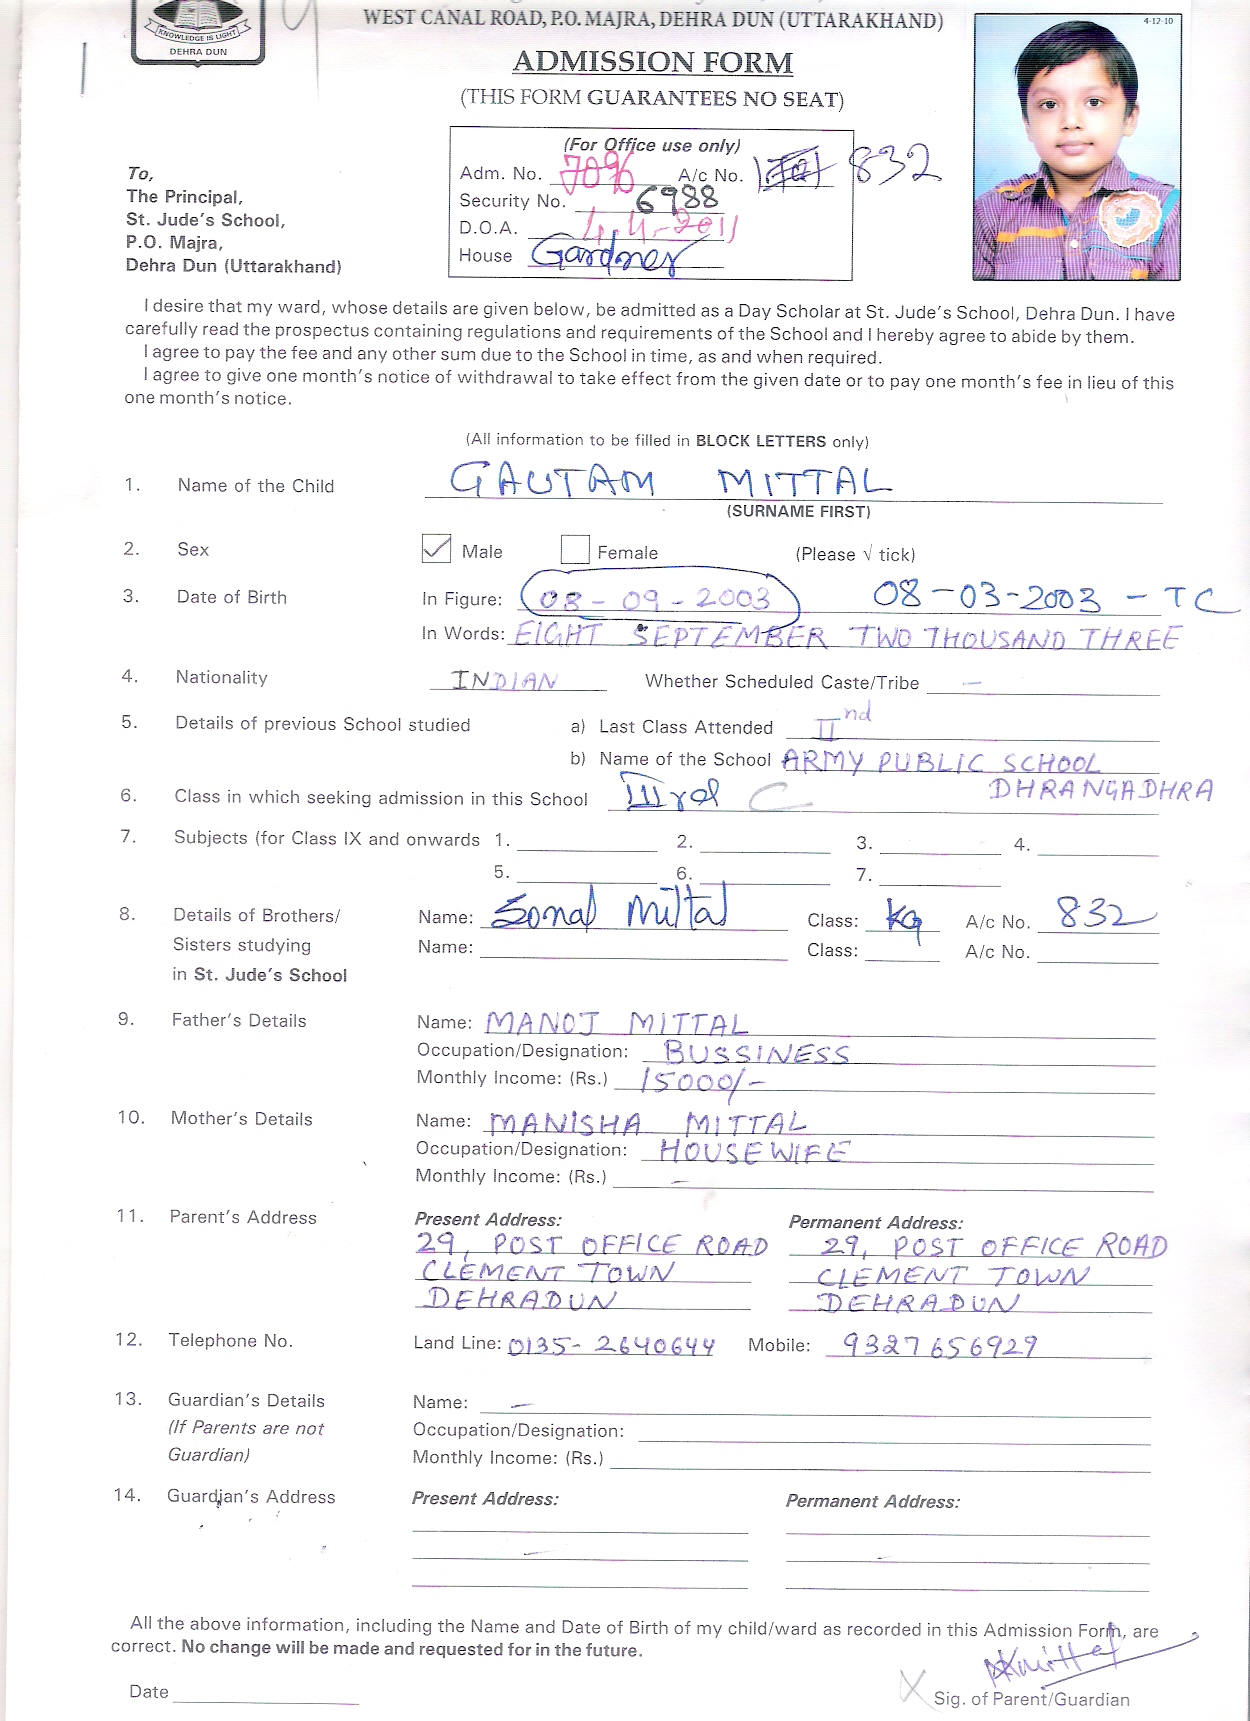 KNOWLEDGE IS LIGHT
DEHRA DUN
WEST CANAL ROAD, P.O. MAJRA, DEHRA DUN (UTTARAKHAND)
4-12-10
ADMISSION FORM
(THIS FORM GUARANTEES NO SEAT)
(For Office use only)
Adm. No. 7096 A/c No. 832
Security No. 6988
D.O.A. 4-4-2011
House Gardner
To,
The Principal,
St. Jude's School,
P.O. Majra,
Dehra Dun (Uttarakhand)
I desire that my ward, whose details are given below, be admitted as a Day Scholar at St. Jude's School, Dehra Dun. I have
carefully read the prospectus containing regulations and requirements of the School and I hereby agree to abide by them.
I agree to pay the fee and any other sum due to the School in time, as and when required.
I agree to give one month's notice of withdrawal to take effect from the given date or to pay one month's fee in lieu of this
one month's notice.
(All information to be filled in BLOCK LETTERS only)
1. Name of the Child GAUTAM MITTAL
(SURNAME FIRST)
2. Sex Male Female (Please √ tick)
3. Date of Birth In Figure: 08-09-2003 08-03-2003 - TC
In Words: EIGHT SEPTEMBER TWO THOUSAND THREE
4. Nationality INDIAN Whether Scheduled Caste/Tribe —
5. Details of previous School studied a) Last Class Attended IInd
b) Name of the School ARMY PUBLIC SCHOOL
DHRANGADHRA
6. Class in which seeking admission in this School IIIrd C
7. Subjects (for Class IX and onwards 1. 2. 3. 4.
5. 6. 7.
8. Details of Brothers/ Name: Sonal Mittal Class: KG A/c No. 832
Sisters studying Name: Class: A/c No.
in St. Jude's School
9. Father's Details Name: MANOJ MITTAL
Occupation/Designation: BUSSINESS
Monthly Income: (Rs.) 15000/-
10. Mother's Details Name: MANISHA MITTAL
Occupation/Designation: HOUSEWIFE
Monthly Income: (Rs.) —
11. Parent's Address Present Address: Permanent Address:
29, POST OFFICE ROAD 29, POST OFFICE ROAD
CLEMENT TOWN CLEMENT TOWN
DEHRADUN DEHRADUN
12. Telephone No. Land Line: 0135-2640644 Mobile: 9327656929
13. Guardian's Details Name: —
(If Parents are not Occupation/Designation:
Guardian) Monthly Income: (Rs.)
14. Guardian's Address Present Address: Permanent Address:
All the above information, including the Name and Date of Birth of my child/ward as recorded in this Admission Form, are
correct. No change will be made and requested for in the future.
Date
Sig. of Parent/Guardian